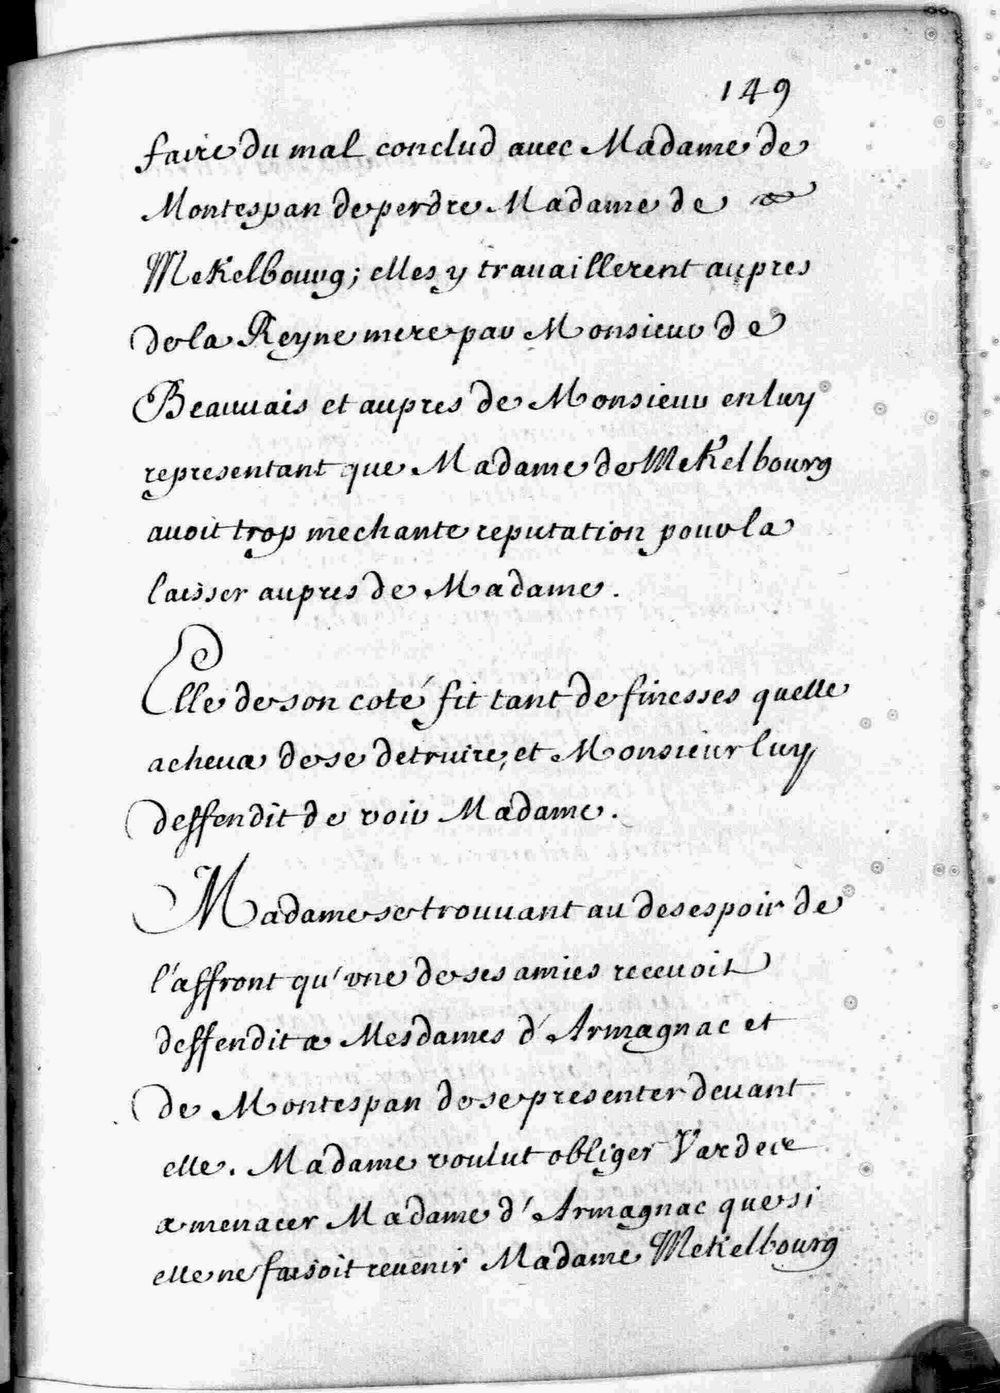 149
faire du mal conclud avec Madame de
Montespan de perdre Madame de
Mekelbourg; elles y travaillerent aupres
de la Reyne mere par Monsieur de
Beauvais et aupres de Monsieur en luy
representant que Madame de Mekelbourg
avoit trop mechante reputation pour la
laisser aupres de Madame.
Elle de son coté fit tant de finesses quelle
acheva de se detruire, et Monsieur luy
deffendit de voir Madame.
Madame se trouvant au desespoir de
l'affront qu'vne de ses amies recevoit
deffendit a Mesdames d'Armagnac et
de Montespan de se presenter devant
elle. Madame voulut obliger Vardece
a menacer Madame d'Armagnac que si
elle ne faisoit revenir Madame Mekelbourg